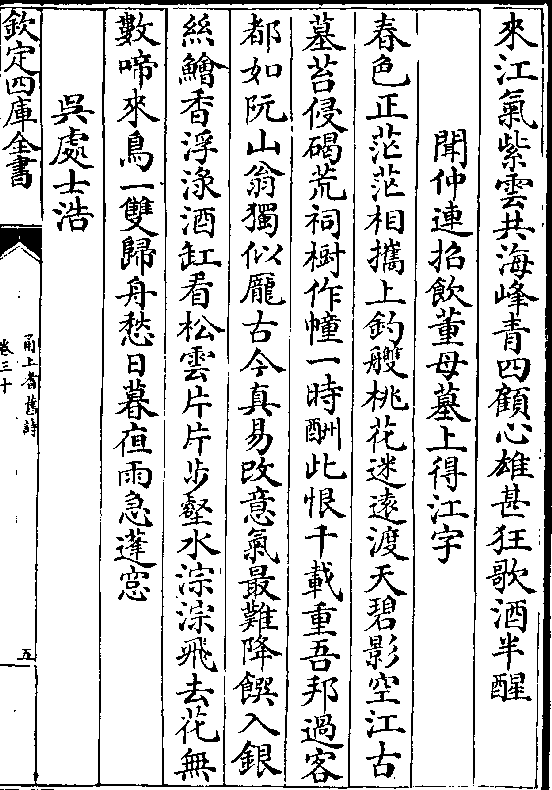 來江氣紫雲共海峰青四顧心雄甚狂歌酒半醒
聞仲連招飲董母墓上得江字
春色正茫茫相攜上釣艭桃花迷遠渡天碧影空江古
墓苔侵碣荒祠樹作幢一時酬此恨千載重吾邦過客
都如阮山翁獨似龐古今真易改意氣最難降饌入銀
絲鱠香浮淥酒缸看松雲片片步壑水淙淙飛去花無
數啼來鳥一雙歸舟愁日暮夜雨急蓬窓
吳處士浩
欽定四庫全書
甬上耆舊詩
卷三十
五